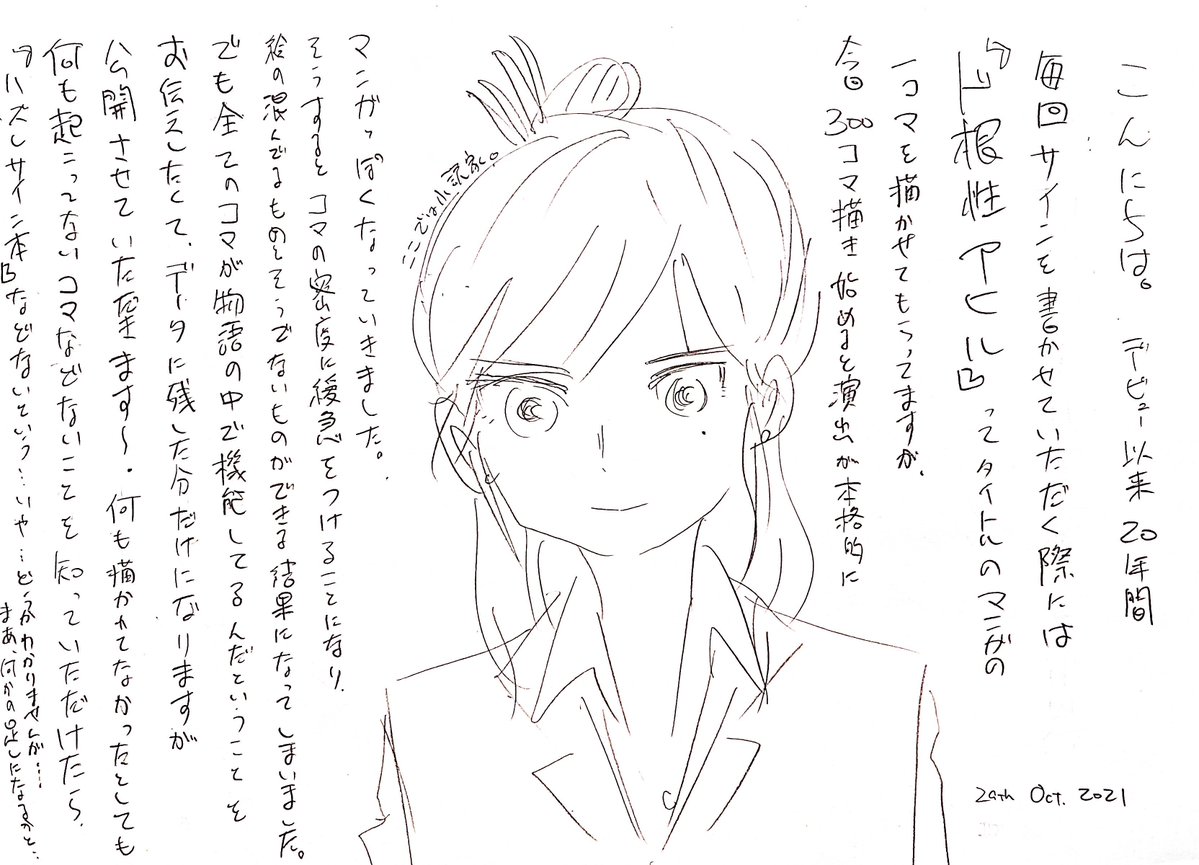 こんにちは。デビュー以来20年間
毎回サインを書かせていただく際には
『ド根性アヒル』ってタイトルのマンガの
一コマを描かせてもらってますが、
今回300コマ描き始めると演出が本格的に
マンガっぽくなっていきました。
そうするとコマの密度に緩急をつけることになり、
絵の混んでるものとそうでないものができる結果になってしまいました。
でも全てのコマが物語の中で機能してるんだということを
お伝えしたくて、データに残した分だけになりますが
公開させていただきます〜。何も描かれてなかったとしても
何も起こってないコマなどないことを知っていただけたら、
『ハズレサイン本』などないという…いや…どうかわかりませんが…
まあ、何かの足しになるかと…
ここでは小説家。
29th Oct. 2021